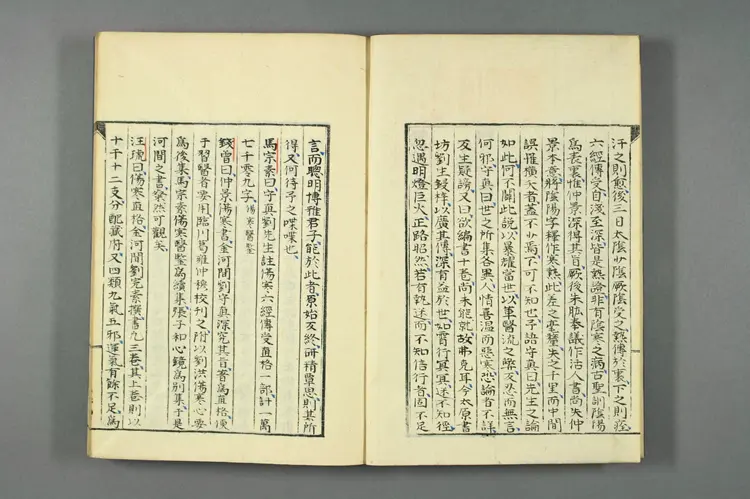 汗之則愈後三日太陰少陰厥陰受之熱傳於裏下之則痊
六經傳受自淺至深皆是熱證非有陰寒之病古聖訓陰陽
為表裏惟仲景深得其旨厥後朱肱奉議作活人書尚失仲
景本意將陰陽字釋作寒熱此差之毫釐失之千里而中間
誤罹橫夭者蓋不少焉不可不知也予語守真曰先生之論
如此何不開此說以暴耀當世以革醫流之弊反忍而無言
何邪守真曰世之所集各異人情喜溫而惡寒恐論者不詳
反生疑謗又曰欲編書十卷尚未能就故弗克耳今太原書
坊劉生鋟梓以廣其傳深有益於世如宵行冥冥迷不知徑
忽遇明燈巨火正路昭然若有執迷而不知信行者固不足
言而聰明博雅君子能於此者原始反終研精覃思則其所
得又何待予之喋喋也
馬宗素曰守真劉先生註傷寒六經傳受直格一部計一萬
七千零九字傷寒醫鑒
錢曾曰仲景傷寒書金河間劉守真深究其旨著為直格便
于習醫者要用臨川葛雍仲穆校刊之附以劉洪傷寒心要
為後集馬宗素傷寒醫鑒為續集張子和心鏡為別集于是
河間之書粲然可觀矣
汪琥曰傷寒直格金河間劉完素撰書凡三卷其上卷則以
十干十二支分配臟府又四類九氣五邪運氣有餘不足為